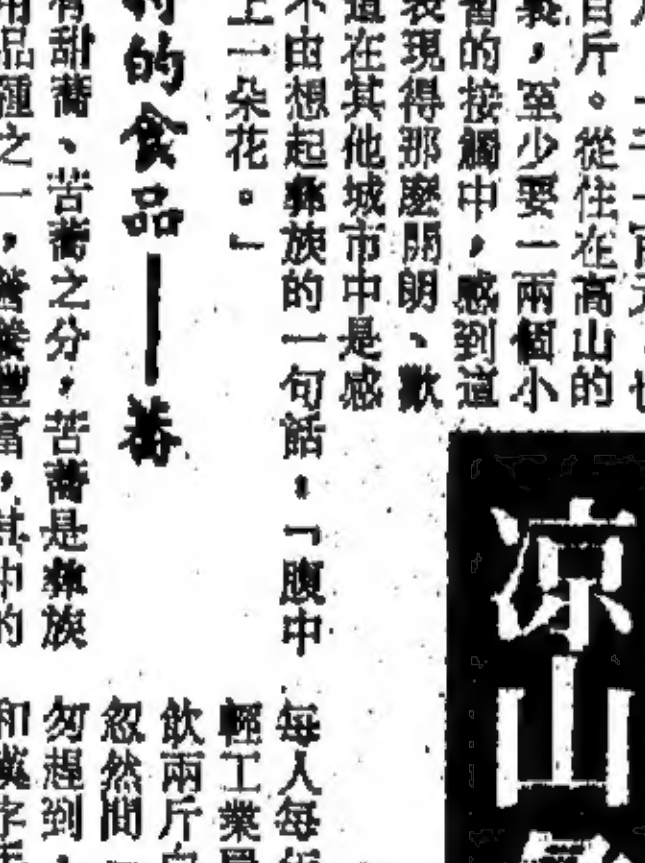 百斤。從住在高山的
義,至少要一兩個小
的接觸中,感到這
表現得那麼開朗、歡
道在其他城市中是感
不由想起彝族的一句話:「腹中
上一朵花。」
的食品——蕎
有甜蕎、苦蕎之分,苦蕎是彝族
品種之一,營養豐富,其中的
凉山
每人每
輕工業
飲兩斤
忽然間
匆趕到,
和漢字